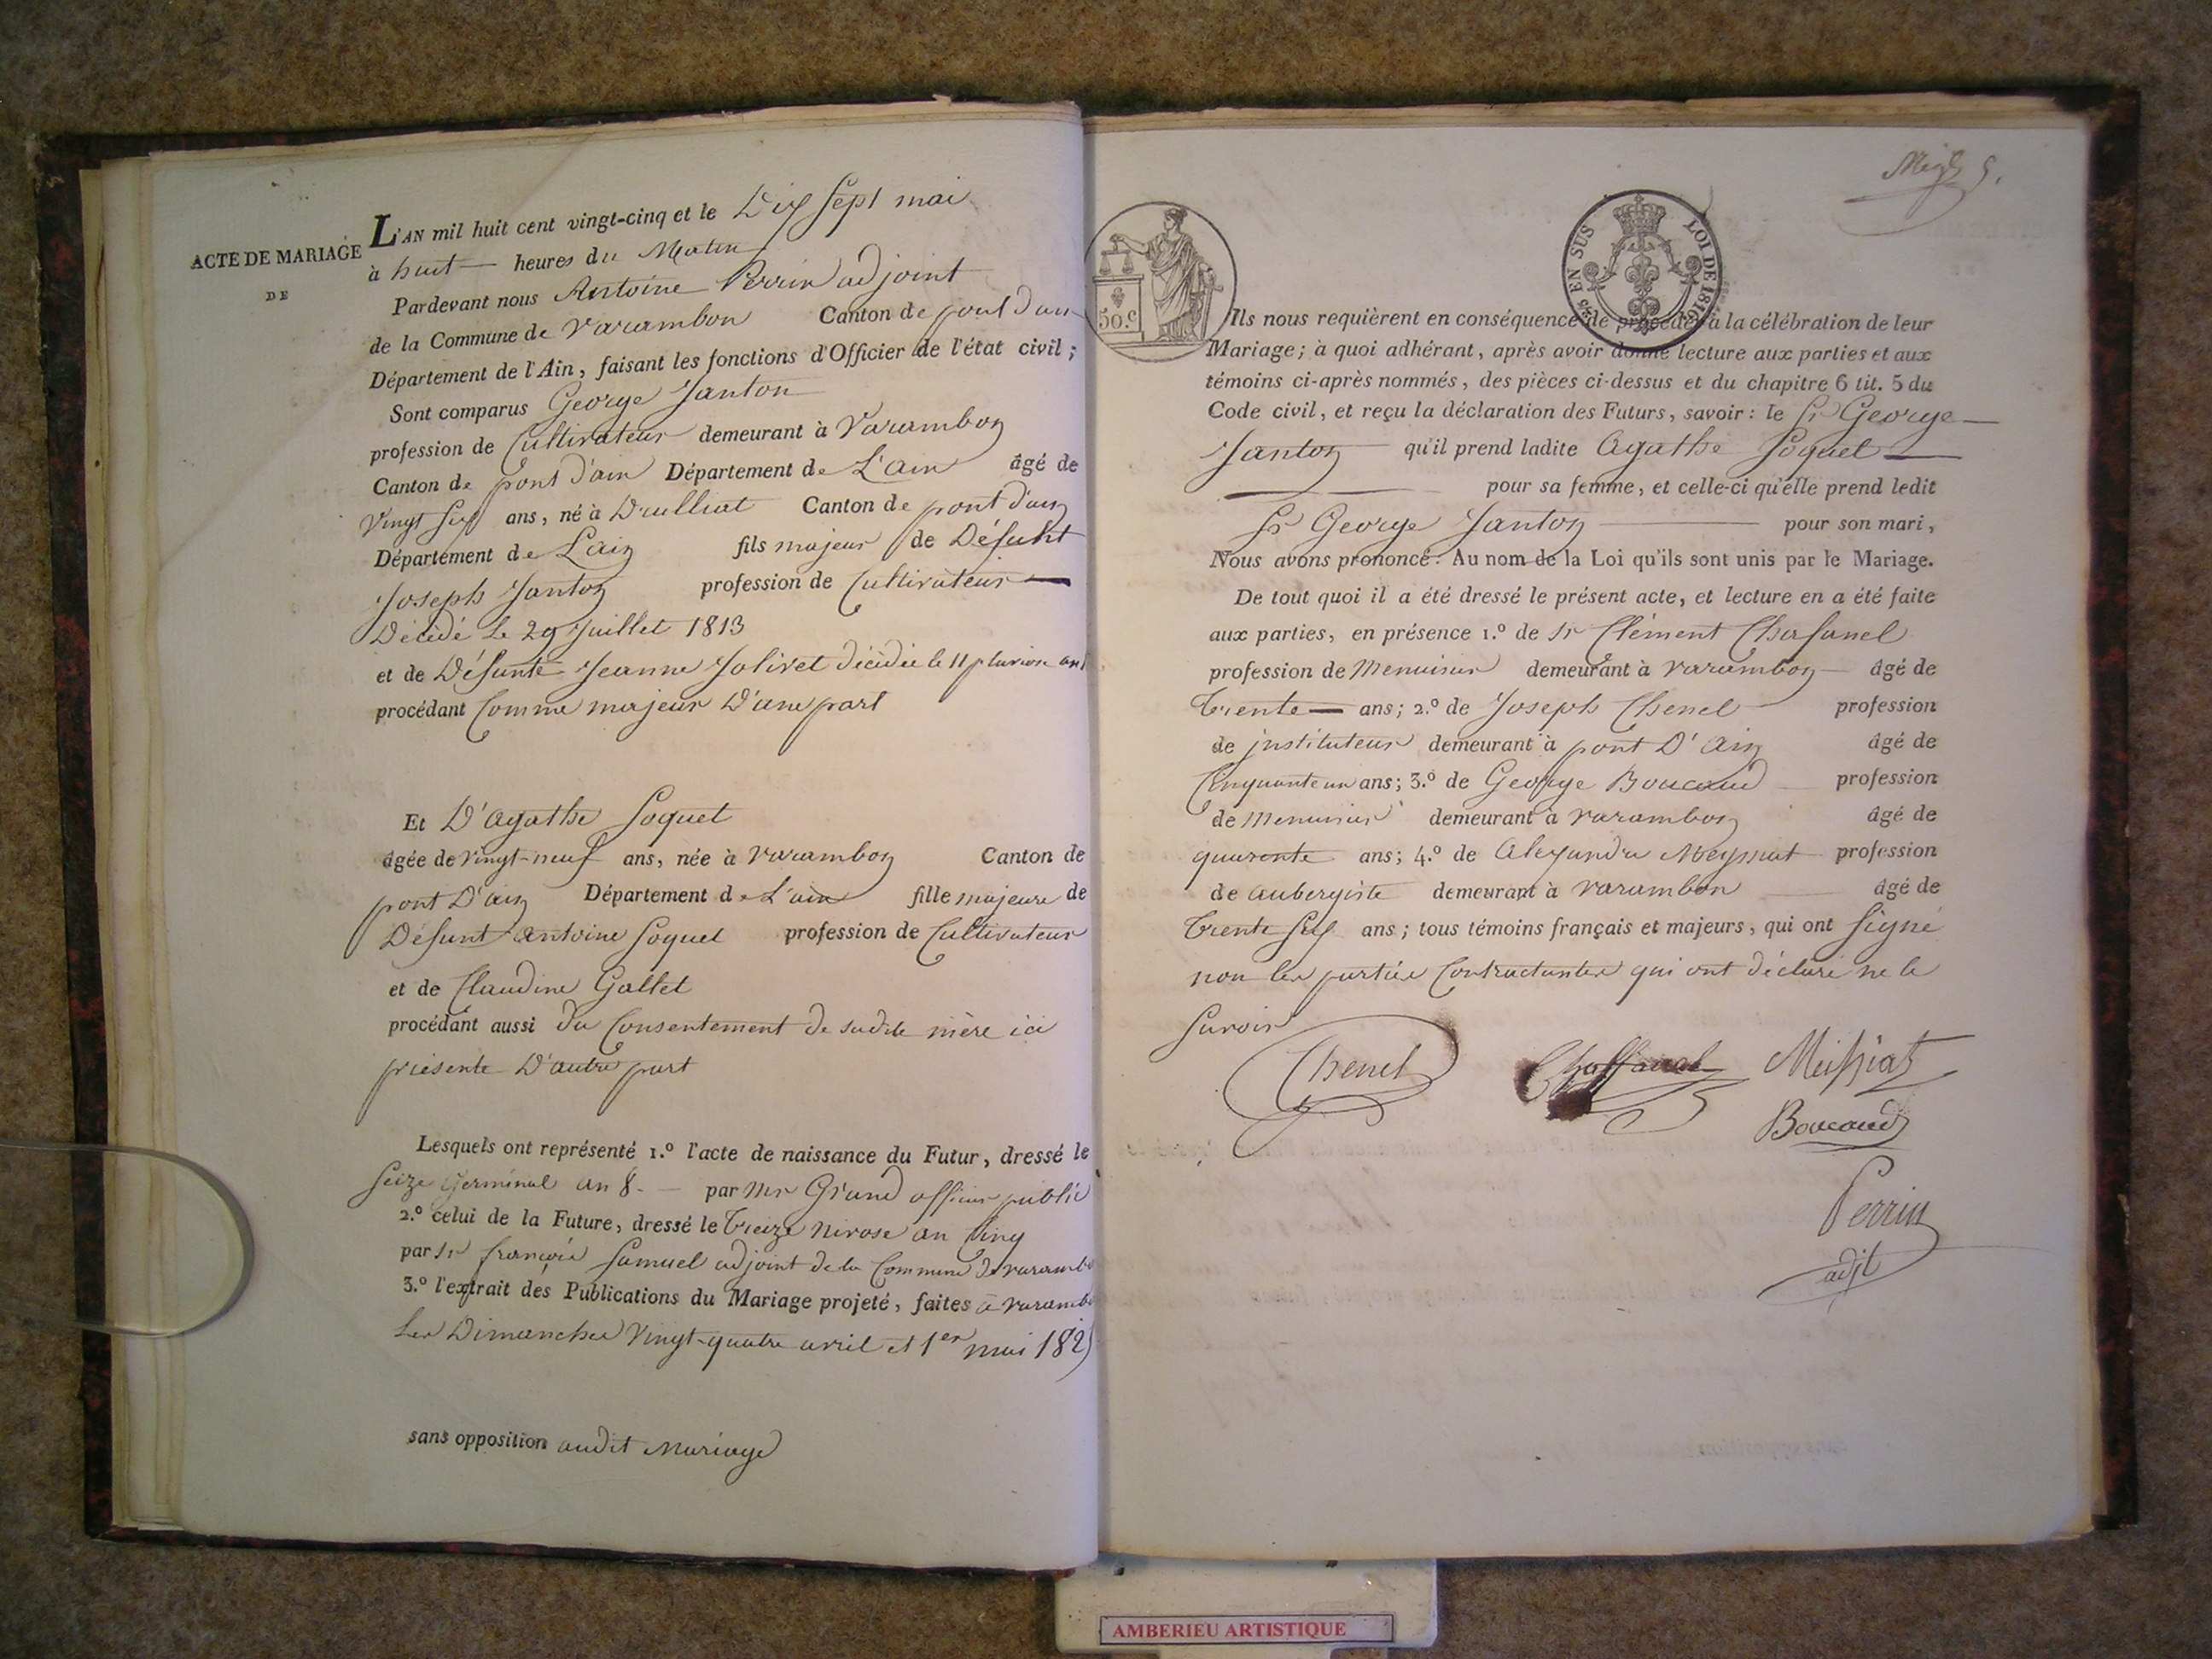 ACTE DE MARIAGE
DE
L'AN mil huit cent vingt-cinq et le Dix Sept mai
à huit heures du Matin
Pardevant nous Antoine Perrin adjoint
de la Commune de Varambon Canton de pont d'ain
Département de l'Ain, faisant les fonctions d'Officier de l'état civil;
Sont comparus George Janton
profession de Cultivateur demeurant à Varambon
Canton de pont d'ain Département de L'ain âgé de
Vingt six ans, né à Druilliat Canton de pont d'ain
Département de L'ain fils majeur de Défunt
Joseph Janton profession de Cultivateur
Décédé le 29 Juillet 1813
et de Défunte Jeanne Jolivet décédée le 11 pluviose an
procédant Comme majeur D'une part
Et D'agathe Soquet
âgée de vingt-neuf ans, née à varambon Canton de
pont D'ain Département de L'ain fille majeure de
Défunt antoine Soquet profession de Cultivateur
et de Claudine Gallet
procédant aussi du Consentement de sadite mère ici
présente D'autre part
Lesquels ont représenté 1.º l'acte de naissance du Futur, dressé le
Seize Germinal an 8. par Mr Grand officier public
2.º celui de la Future, dressé le treize nivose an Cinq
par Sr françois Samuel adjoint de la Commune de varambo
3.º l'extrait des Publications du Mariage projeté, faites à varambo
Les Dimanches Vingt-quatre avril et 1er mai 1825
sans opposition audit Mariage
5.
50.C
25 EN SUS LOI DE 1816
Ils nous requièrent en conséquence de procéder à la célébration de leur
Mariage; à quoi adhérant, après avoir donné lecture aux parties et aux
témoins ci-après nommés, des pièces ci-dessus et du chapitre 6 tit. 5 du
Code civil, et reçu la déclaration des Futurs, savoir: le Sr George
Janton qu'il prend ladite Agathe Soquet
pour sa femme, et celle-ci qu'elle prend ledit
Sr George Janton pour son mari,
Nous avons prononcé: Au nom de la Loi qu'ils sont unis par le Mariage.
De tout quoi il a été dressé le présent acte, et lecture en a été faite
aux parties, en présence 1.º de Sr Clément Chafanel
profession de Menuisier demeurant à varambon âgé de
trente ans; 2.º de Joseph Chenel profession
de instituteur demeurant à pont D'Ain âgé de
Cinquante un ans; 3.º de George Boucaud profession
de Menuisier demeurant à varambon âgé de
quarente ans; 4.º de Alexandre Meyssiat profession
de aubergiste demeurant à varambon âgé de
trente six ans; tous témoins français et majeurs, qui ont signé
non les parties Contractantes qui ont déclaré ne le
Savoir
Chenel Chaffanel Meissiat
Boucaud
Perrin
adjt
AMBERIEU ARTISTIQUE